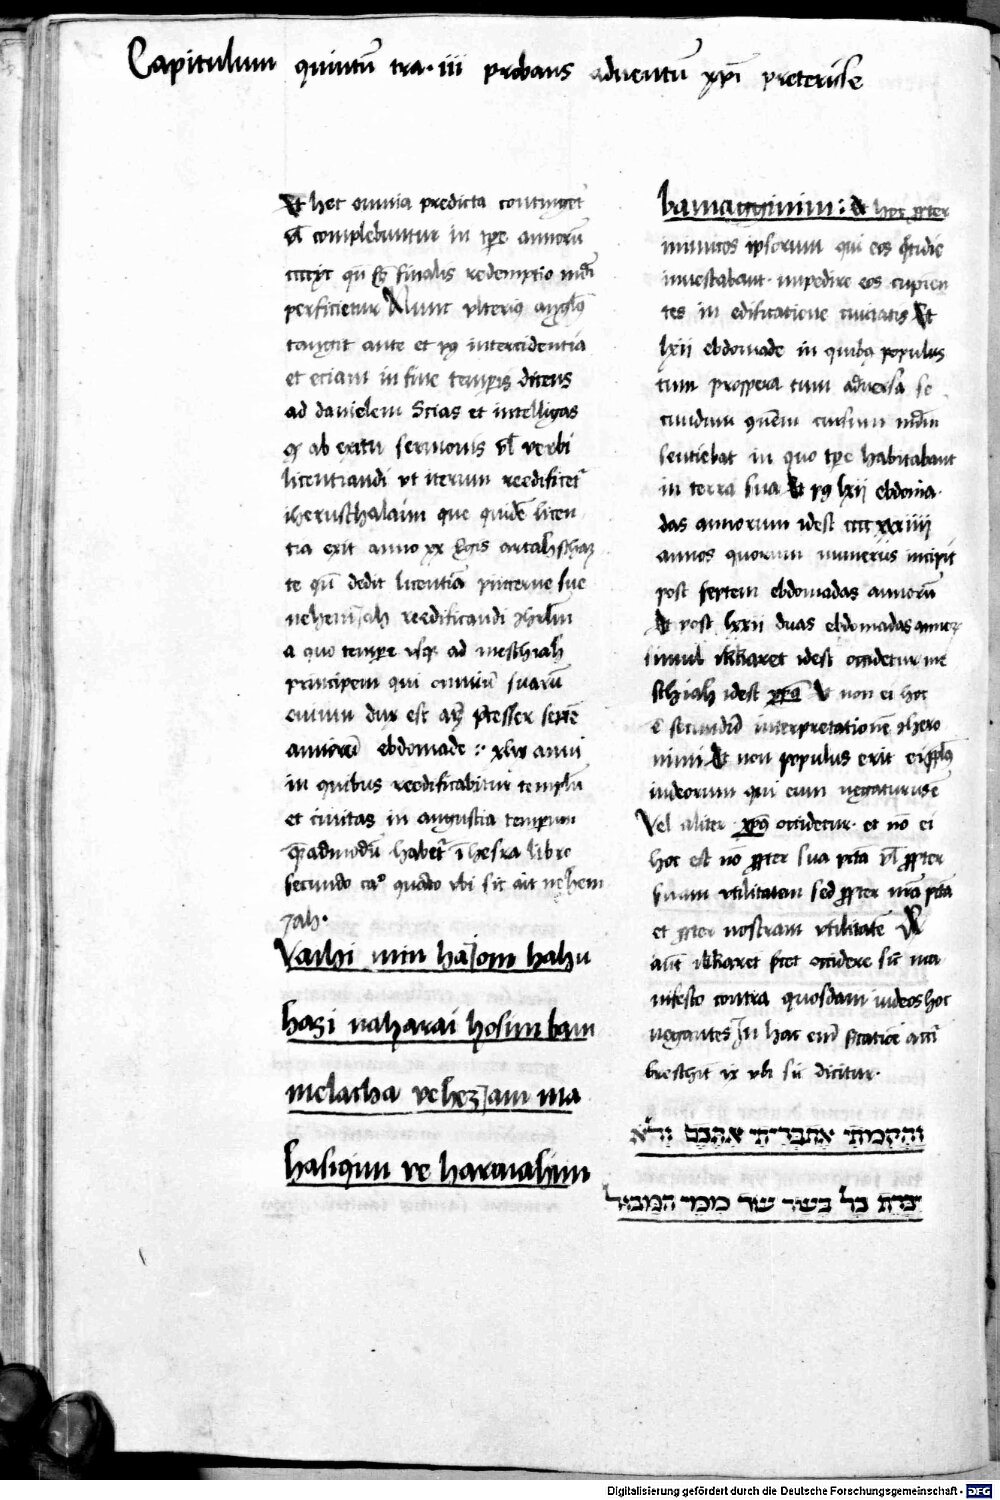 Capitulum quintū tra· iii probans aduentū xpī preterisse
Et hec omnia predicta continget
vl complebuntur in tpe annorū
ccccxc qn̄ finalis redemptio mdī
perficietur Nunc vlteriꝰ anglꝰ
tangit ante et pꝰ intercidentia
et eciam in fine temporis dicens
ad danielem Scias et intelligas
ꝙ ab exitu sermonis vl verbi
licentiandi vt iterum reedificetr
iheruschalaim que quidē licen
tia exit anno xx regis artahschaz
te qn̄ dedit licentiā pincerne sue
nehemJah reedificandi Jhrlm
a quo tempore vsqꝫ ad meschiah
principem qui omniū suarū
enim dux est septē
annorū ebdomade : xlix anni
in quibus reedificabitur templū
et ciuitas in angustia temporum
quēadmodū habetr ī hesra libro
secundo ca° quarto vbi sic ait nehem
Jah·
Vaihi min haJom hahu
hazi naharai hosim bam
melacha vehezJam ma
hasiqim ve haromahim
bamagginim : et hoc propter
inimicos ipsorum qui eos cotidie
infestabant· impedire eos cupien
tes in edificatione ciuitatis Et
lxii ebdomade in quibꝰ populus
tum prospera tum aduersa se
cundum cursum mdi
sentiebat in quo tpe habitabant
in terra sua Et pꝰ lxii ebdoma
das annorum idest cccc xxxiiii
annos quorum numerus incipit
post septem ebdomadas annorū
Et post lxii duas ebdomadas annorꝫ
simul ikkaret idest occidetur me
schiah idest xpꝰ Et non ei hoc
ē secundū interpretationē Jhero
nimi Et non populus erit ei pplꝰ
iudeorum qui eum negaturus ē
Vel aliter xpꝰ occidetur· et nō ei
hoc est nō propter sua pctā vl propter
suam vtilitatem sed propter nrā pctā
et propter nostram vtilitatē
aūt ikkaret occidere sit ma
nifesto contra quosdam iudeos hoc
negantes In hac
breschit ix vbi sic dicitur·
והקמתי את בריתי אתכם ולא
יכרת כל בשר עוד ממי המבול